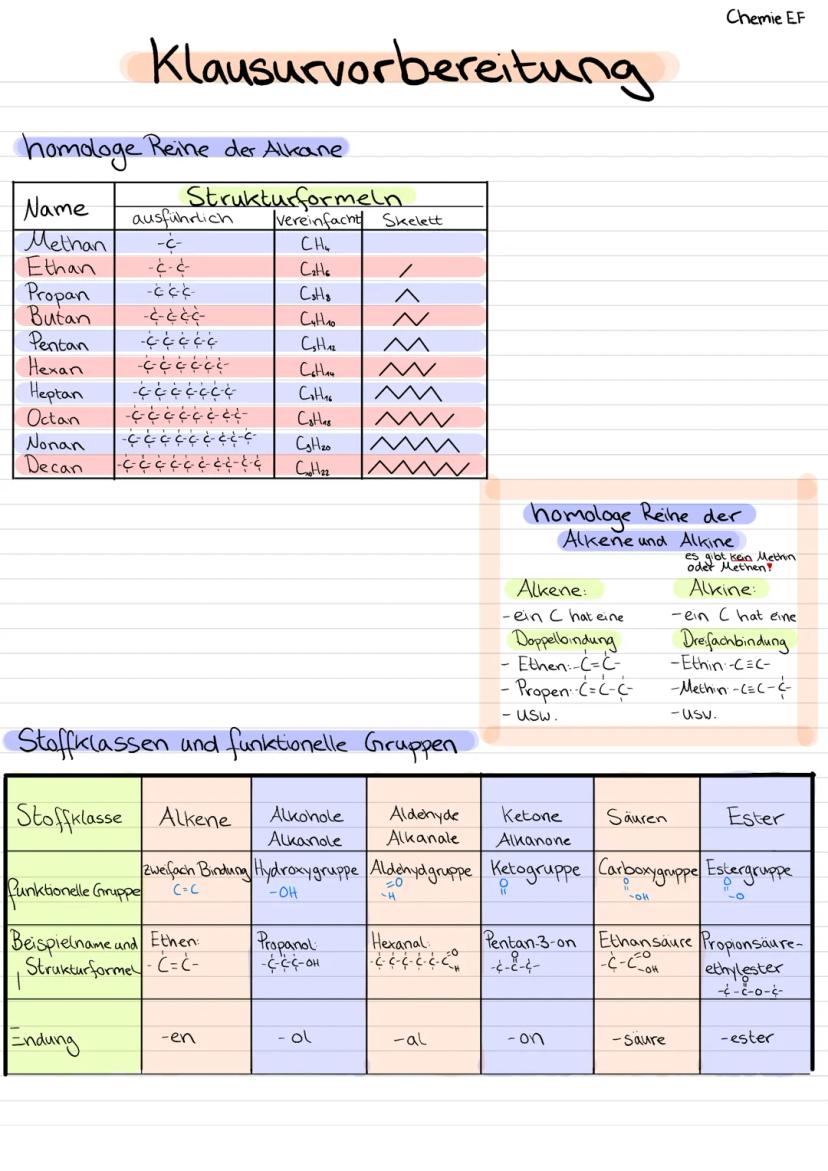 Chemie EF
Klausurvorbereitung
homologe Reihe der Alkane
Name Strukturformeln
ausführlich vereinfacht Skelett
Methan -C- CH₄
Ethan -C-C- C₂H₆
Propan -C-C-C- C₃H₈
Butan -C-C-C-C- C₄H₁₀
Pentan -C-C-C-C-C- C₅H₁₂
Hexan -C-C-C-C-C-C- C₆H₁₄
Heptan -C-C-C-C-C-C-C- C₇H₁₆
Octan -C-C-C-C-C-C-C-C- C₈H₁₈
Nonan -C-C-C-C-C-C-C-C-C- C₉H₂₀
Decan -C-C-C-C-C-C-C-C-C-C- C₁₀H₂₂
homologe Reihe der
Alkene und Alkine
es gibt kein Methin
oder Methen!
Alkene: Alkine:
- ein C hat eine - ein C hat eine
Doppelbindung Dreifachbindung
- Ethen: -C=C- - Ethin: -C≡C-
- Propen: -C=C-C- - Methin: -C≡C-C-
- usw. - usw.
Stoffklassen und funktionelle Gruppen
Stoffklasse Alkene Alkohole Aldehyde Ketone Säuren Ester
Alkanole Alkanale Alkanone
funktionelle Gruppe zweifach Bindung Hydroxygruppe Aldehydgruppe Ketogruppe Carboxygruppe Estergruppe
C=C -OH =O -H O= O= -OH O= -O
Beispielname und Ethen: Propanol: Hexanal: Pentan-3-on Ethansäure Propionsäure-
Strukturformel -C=C- -C-C-C-OH -C-C-C-C-C-C=O -H -C-C-C- O -C-C=O -OH ethylester
-C-C-O-C- O
Endung -en -ol -al -on -säure -ester